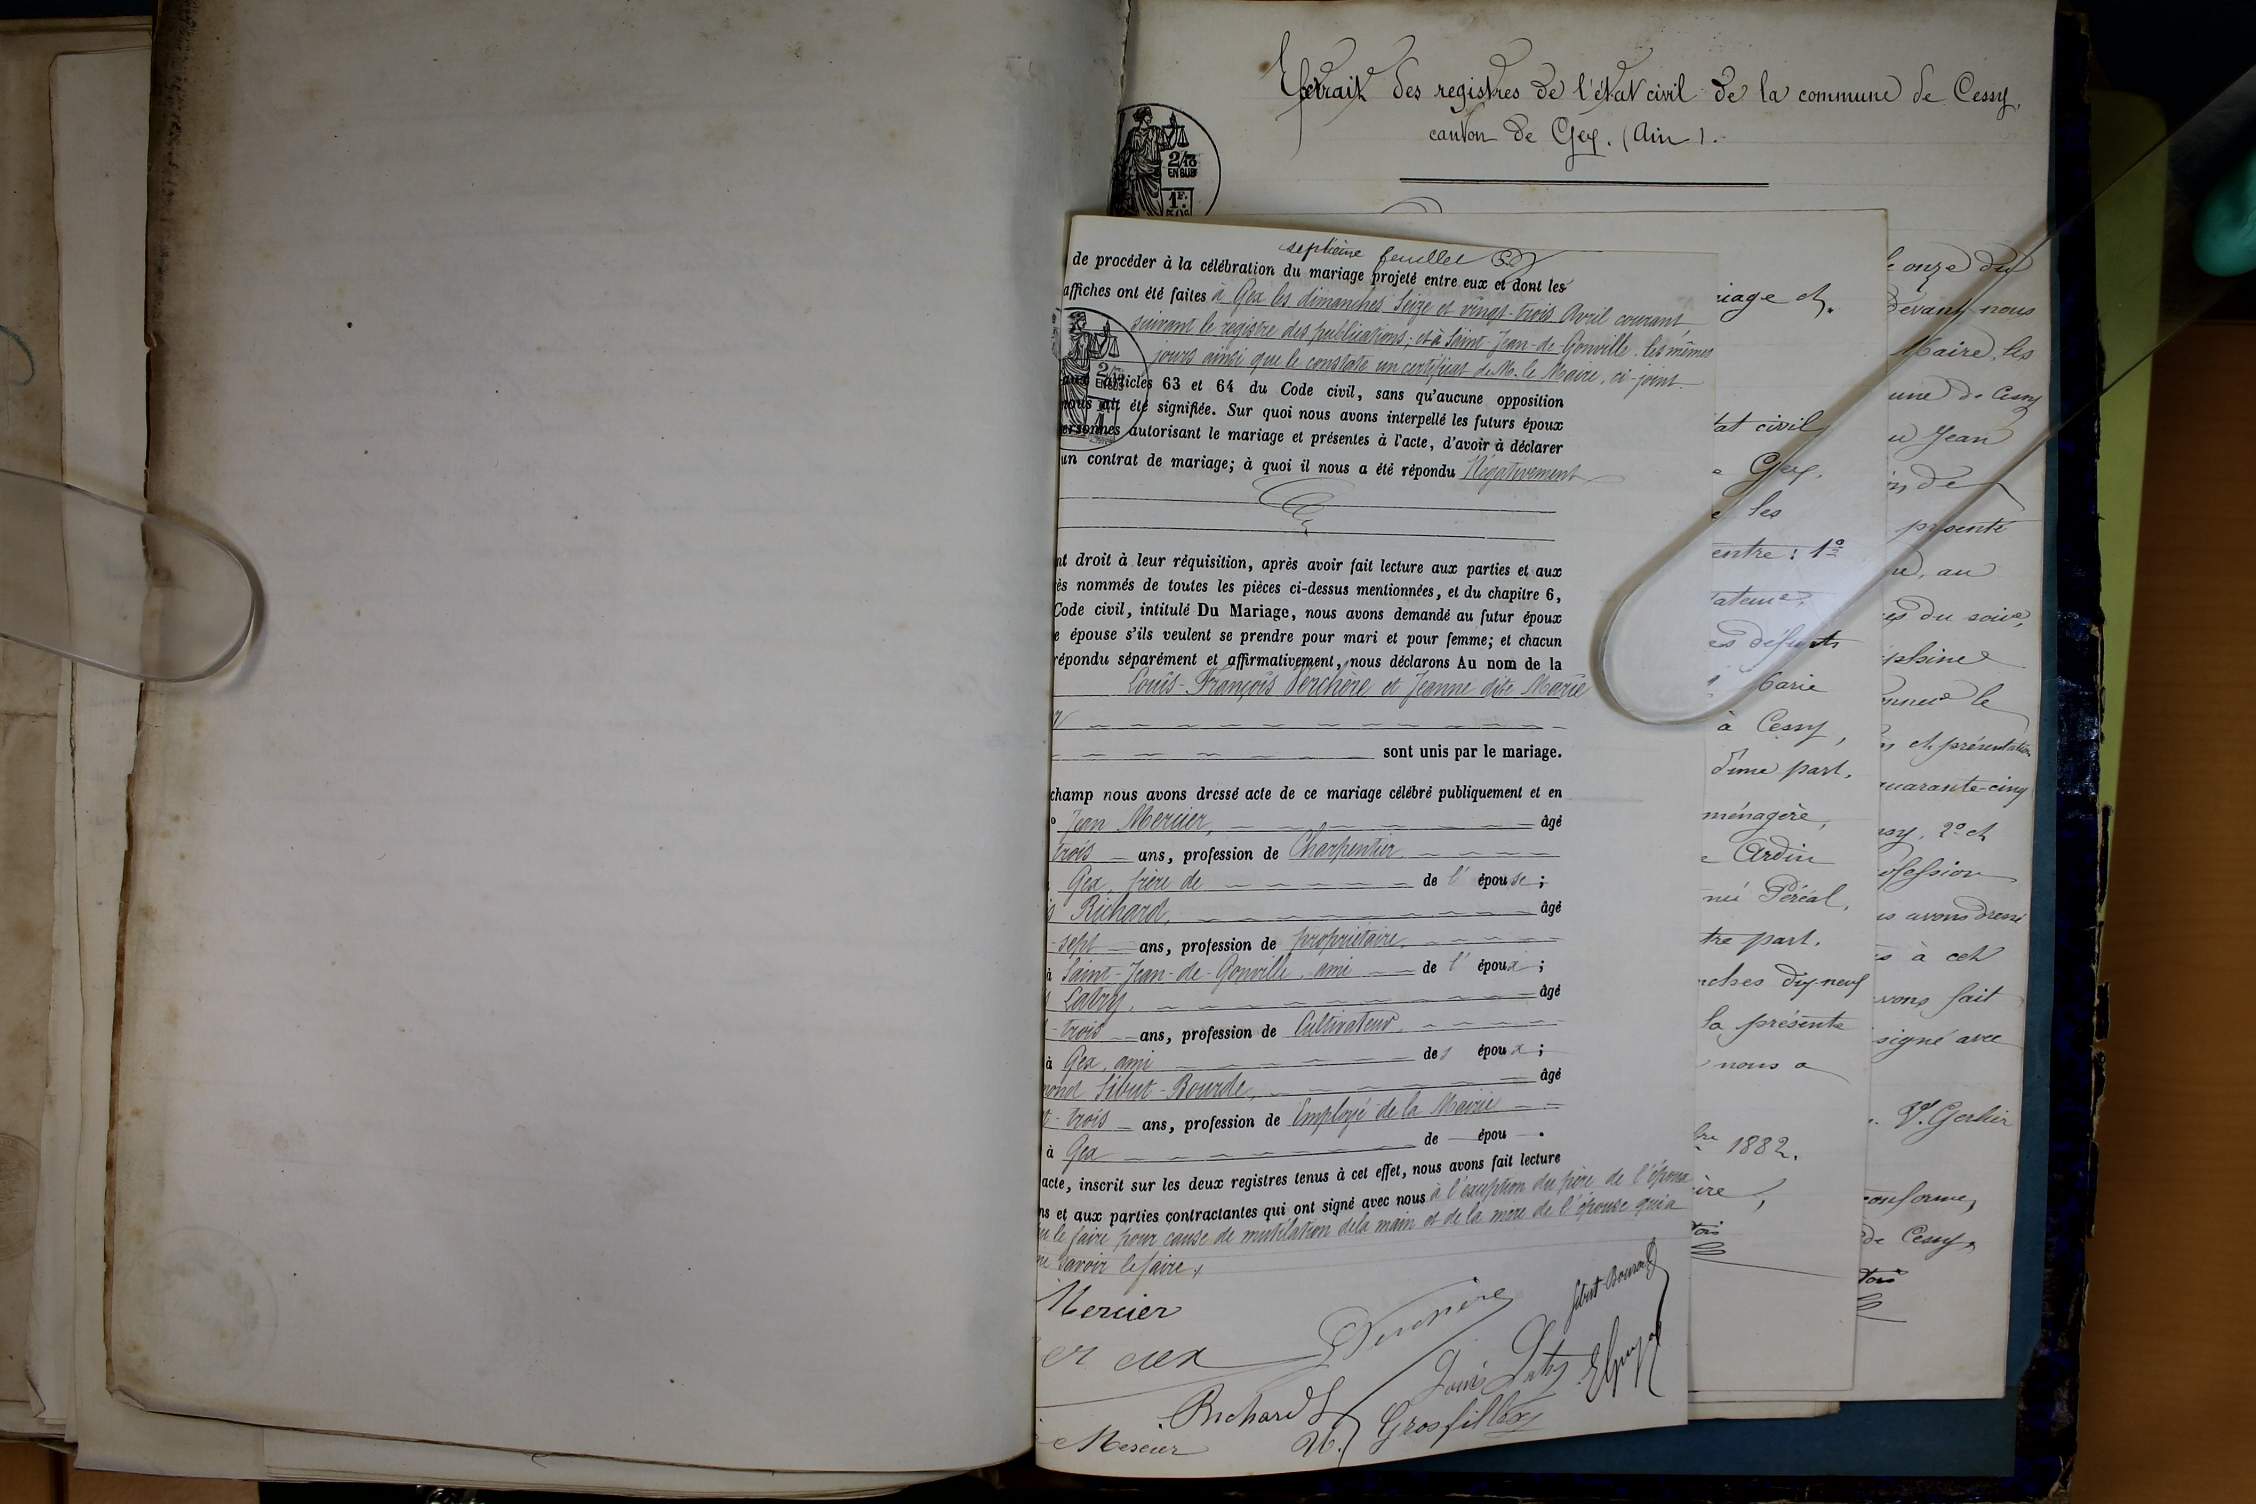 Extrait des registres de l'état civil de la commune de Cessy,
canton de Gex. (Ain).
2/10
EN SUS
1F.
50c
septième feuillet
de procéder à la célébration du mariage projeté entre eux et dont les
affiches ont été faites à Gex les dimanches Seize et vingt-trois Avril courant,
suivant le registre des publications; et à Saint-Jean-de-Gonville les mêmes
jours ainsi que le constate un certificat de M. le Maire, ci-joint.
aux articles 63 et 64 du Code civil, sans qu'aucune opposition
nous ait été signifiée. Sur quoi nous avons interpellé les futurs époux
personnes autorisant le mariage et présentes à l'acte, d'avoir à déclarer
un contrat de mariage; à quoi il nous a été répondu Négativement
nt droit à leur réquisition, après avoir fait lecture aux parties et aux
ès nommés de toutes les pièces ci-dessus mentionnées, et du chapitre 6,
Code civil, intitulé Du Mariage, nous avons demandé au futur époux
e épouse s'ils veulent se prendre pour mari et pour femme; et chacun
répondu séparément et affirmativement, nous déclarons Au nom de la
Louis-François Verchère et Jeanne dite Marie
sont unis par le mariage.
champ nous avons dressé acte de ce mariage célébré publiquement et en
Jean Mercier, âgé
trois ans, profession de Charpentier
Gex, frère de de l'épouse;
Richard, âgé
-sept ans, profession de propriétaire
à Saint-Jean-de-Gonville, ami de l'époux;
Latry, âgé
-trois ans, profession de Cultivateur
à Gex, ami des époux;
mond Sibut-Bourde, âgé
t-trois ans, profession de Employé de la Mairie
à Gex de épou .
acte, inscrit sur les deux registres tenus à cet effet, nous avons fait lecture
ns et aux parties contractantes qui ont signé avec nous à l'exception du père de l'époux
u le faire pour cause de mutilation de la main et de la mère de l'épouse qui a
ne savoir le faire.
Mercier
Verchère
Sibut-Bourde
er cier
Louis Latry
Richard
Grosfilley
Mercier
riage et
tat civil
e Gex,
e les
entre : 1º
ateur,
es défunts
Marie
à Cessy,
d'une part,
ménagère,
e Ardin
née Péréal,
tre part.
nches dix-neuf
la présente
nous a
bre 1882.
ire,
tois
e onze du
Devant nous
Maire, les
une de Cessy
u Jean
in de
présenté
u, au
es du soir,
phine
onneur le
ns et présentation
quarante-cinq
ssy, 2º et
ofession
us avons dressé
s à cet
vons fait
signé avec
Vr Gerlier
conforme,
de Cessy,
tois